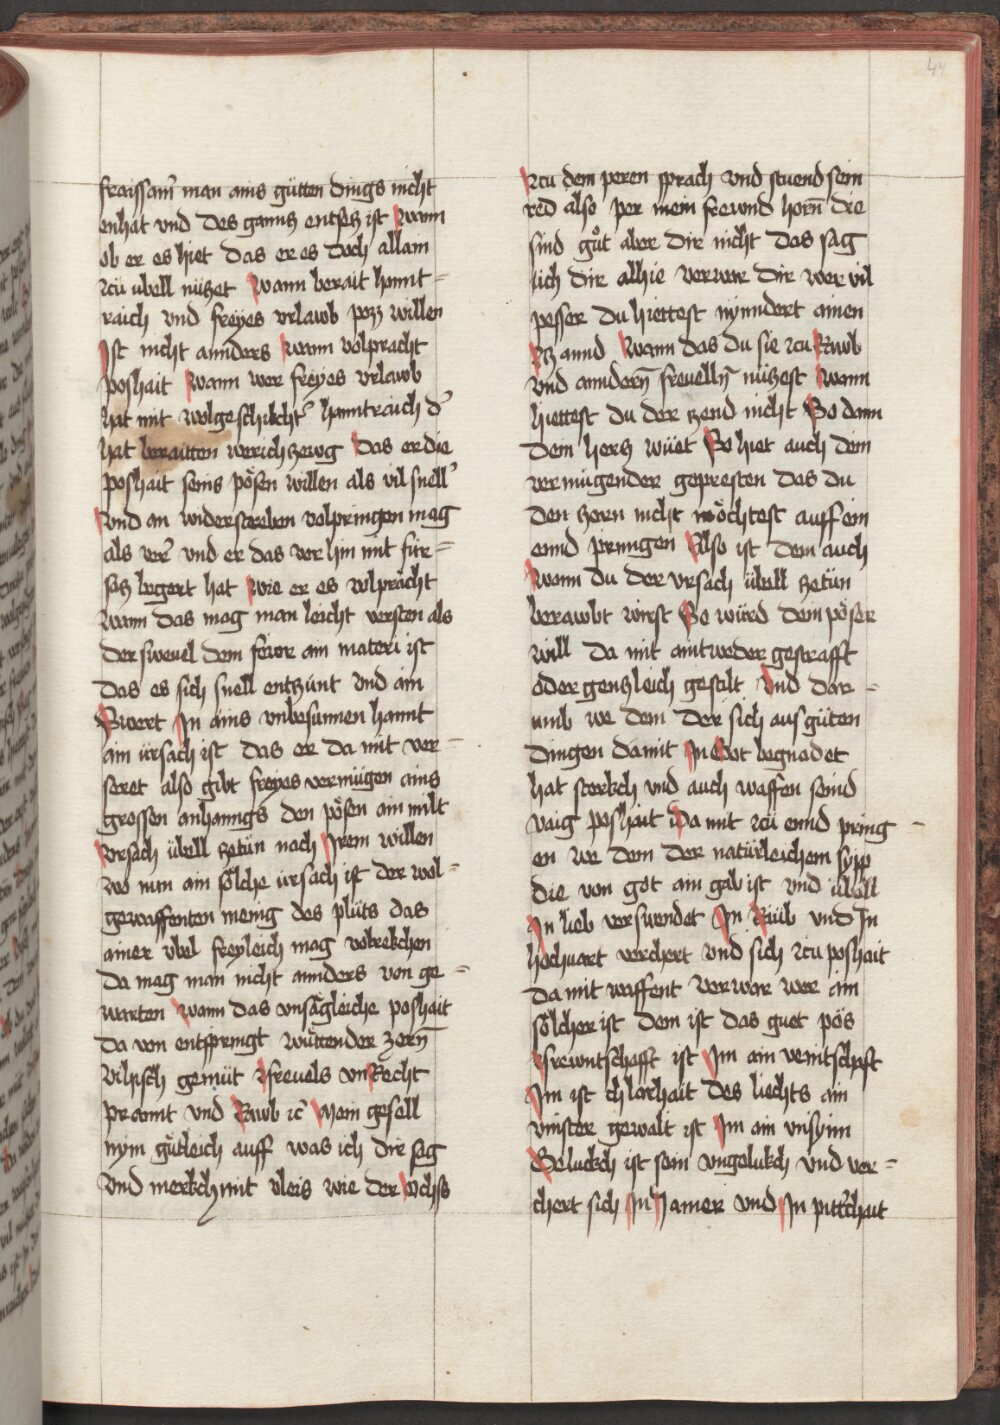 fraissam̄ man ains gütten dings nicht
enhat vnd des gannß entseß ist Wann
ob er es hiet das er es doch allain
zcü ubell nüßet Wann berait hannt=
raich vnd freyes vrlawb poß willen
Ist nicht annders Wann volpracht
poshait Wann wer freyes vrlawb
hat mit wolgeschikcht̄ hanntraich d̄
hat beraitten werichzewg Das er die
poshait seins pösen willen als vil snell̄
Vnd an widerstreben volpringen mag
als ver̄ vnd er das vor hin mit für=
saß begert hat Wie er es volpracht
Wann das mag man leicht versten als
der swevel dem fewr ain materi ist
Das es sich snell entzünt vnd ain
Swert In ains vnbesunnen hannt
ain ursach ist das er da mit ver=
seret also gibt freyes vermügen ains
grossen anhanngs den pösen ain milt
Vrsach übell zetün nach Irem willen
Wo nun ain sölche ürsach ist der wol=
gewaffenten menig des plüts das
ainer vbel freyleich mag
Da mag man nicht annders von ge=
warten Wann das vnsägleiche poshait
Da von entspringt wüttender zorn̄
Vihisch gemüt Vfrevels vnRecht
prannt vnd Rawb ic̄ Mein gesell
nym gütleich auff was ich dir sag
Vnd merkch mit vleis wie der Ochs
Zcu dem peren sprach vnd stuend sein
red also per mein frewnd horn̄ die
sind gůt aber dir nicht das sag
iich dir alhie verwar dir wer vil
pesser du hiettest nynndert ainen
Wann das du sie zcu Rawb
vnd anndern̄ frevelln̄ nüßest Wann
hiettest du der zend nicht So dann
dem herß wüet So hiet auch dein
vermügender gepresten das du
den zorn nicht möchtest auff ein
ennd pringen Also ist dem auch
Wann du der vrsach übell zetün
berawbt wirst So würd dem pöser
will da mit aintweder gestrafft
oder genßleich gestilt Vnd dar=
umb we dem der sich aus güten
dingen damit In Got begnadet
hat sterkch vnd auch waffen seind
vaig poshait Da mit zcü ennd pring=
en we dem der natürleichem sypp
die von got ain gab ist vnd übell
In lieb verswendet In Räüb vnd In
hochuart verchert vnd sich zcu poshait
da mit waffent Verwar wer ain
sölcher ist dem ist das guet pös
Vfrewntschafft ist Im ain veintschafft
Im ist chlarhait des liechts ain
vinster gewalt ist Im ain vnsynn
Gelückch ist sein vngelukch vnd ver=
chert sich In Jamer vnd In pitt̄chait